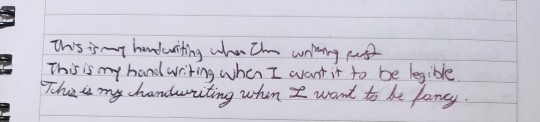 This is my handwriting when I'm writing fast
This is my handwriting when I want it to be legible.
This is my handwriting when I want to be fancy.